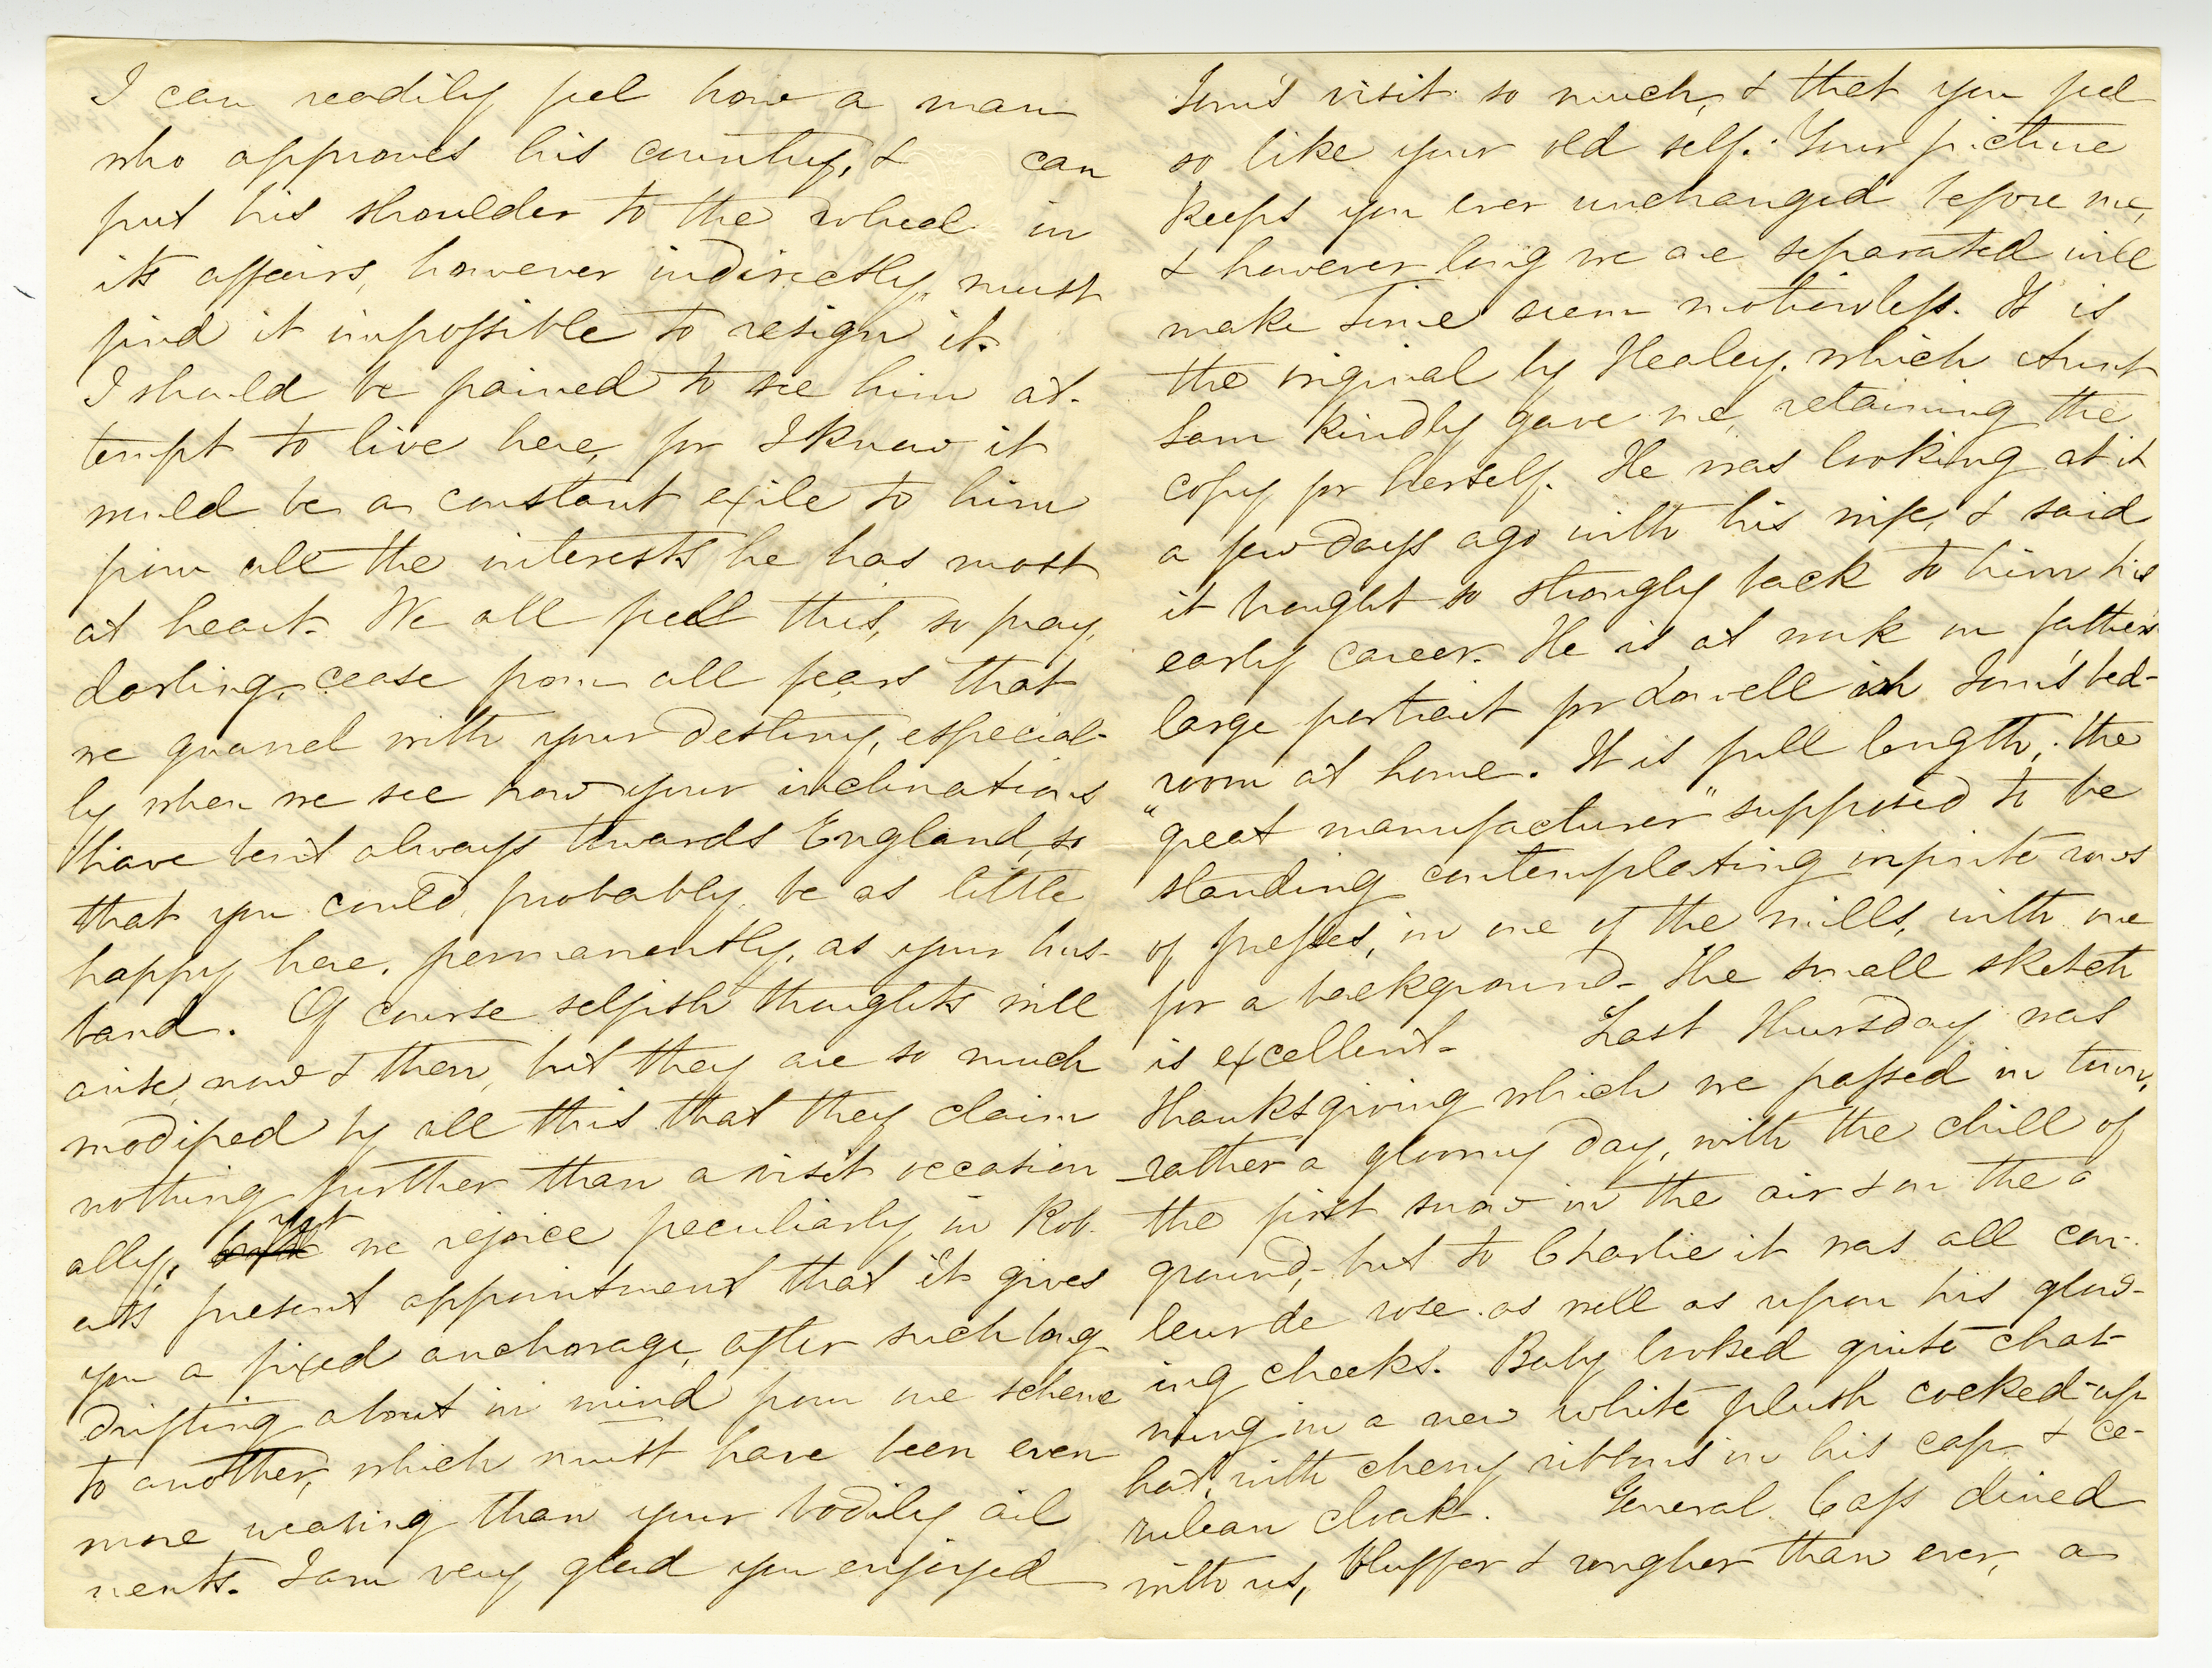 I can readily feel how a man
who approves his country, & can
put his shoulder to the wheel in
its affairs, however indirectly, must
find it impossible to resign it.
I should be pained to see him at-
tempt to live here, for I know it
would be a constant exile to him
from all the interests he has most
at heart. We all feel this, so pray,
darling, cease from all fears that
we quarrel with your destiny, especial-
ly when we see how your inclinations
have bent always towards England, so
that you could, probably, be as little
happy here, permanently, as your hus-
band. Of course selfish thoughts will
arise, now & then, but they are so much
modified by all this that they claim
nothing further than a visit occasion
ally, yet we rejoice peculiarly in Rob-
ert's present appointment that it gives
you a fixed anchorage, after such long
drifting about in mind from one scheme
to another, which must have been even
more wearing than your bodily ail
ments. I am very glad you enjoyed
Tom's visit so much, & that you feel
so like your old self. Your picture
keeps you ever unchanged before me,
& however long we are separated will
make Time seem motionless. It is
the original by Healey, which Aunt
Sam kindly gave me, retaining the
copy for herself. He was looking at it
a few days ago with his wife, & said
it brought so strongly back to him his
early career. He is at work on father's
large portrait for Lowell in Tom's bed-
room at home. It is full length, the
"great manufacturer" supposed to be
standing contemplating infinite rows
of presses, in one of the mills, with one
for a background. The small sketch
is excellent. Last Thursday was
Thanksgiving which we passed in town,
rather a gloomy day, with the chill of
the first snow in the air & on the a
ground, but to Charlie it was all cou-
leur de rose as well as upon his glow-
ing cheeks. Baby looked quite char-
ming in a new white plush cocked-up
hat, with cherry ribbons in his cap & ce-
rulean cloak. General Cass dined
with us, bluffer & rougher than ever, a